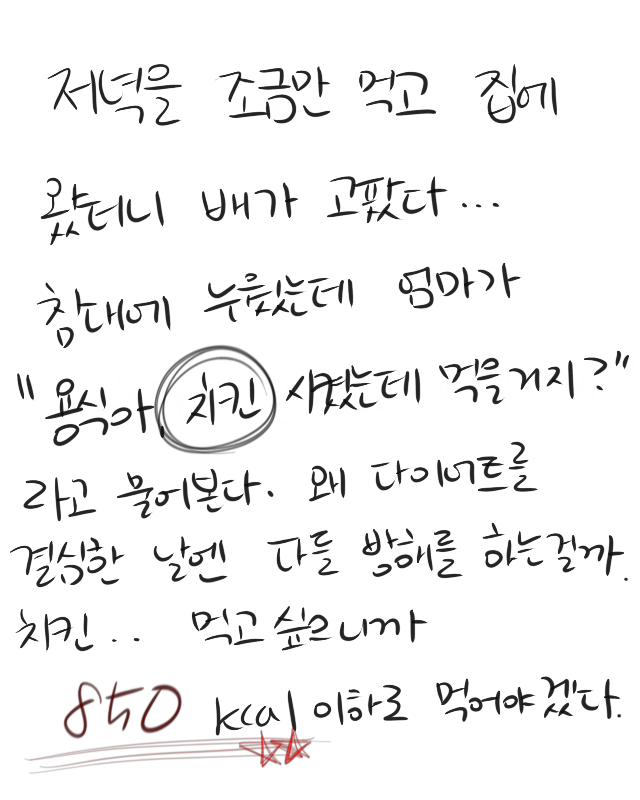 저녁을 조금만 먹고 집에
왔더니 배가 고팠다...
침대에 누웠는데 엄마가
"용식아, 치킨 시켰는데 먹을거지?"
라고 물어본다. 왜 다이어트를
결심한 날엔 다들 방해를 하는걸까.
치킨.. 먹고싶으니까
850 kcal 이하로 먹어야겠다.